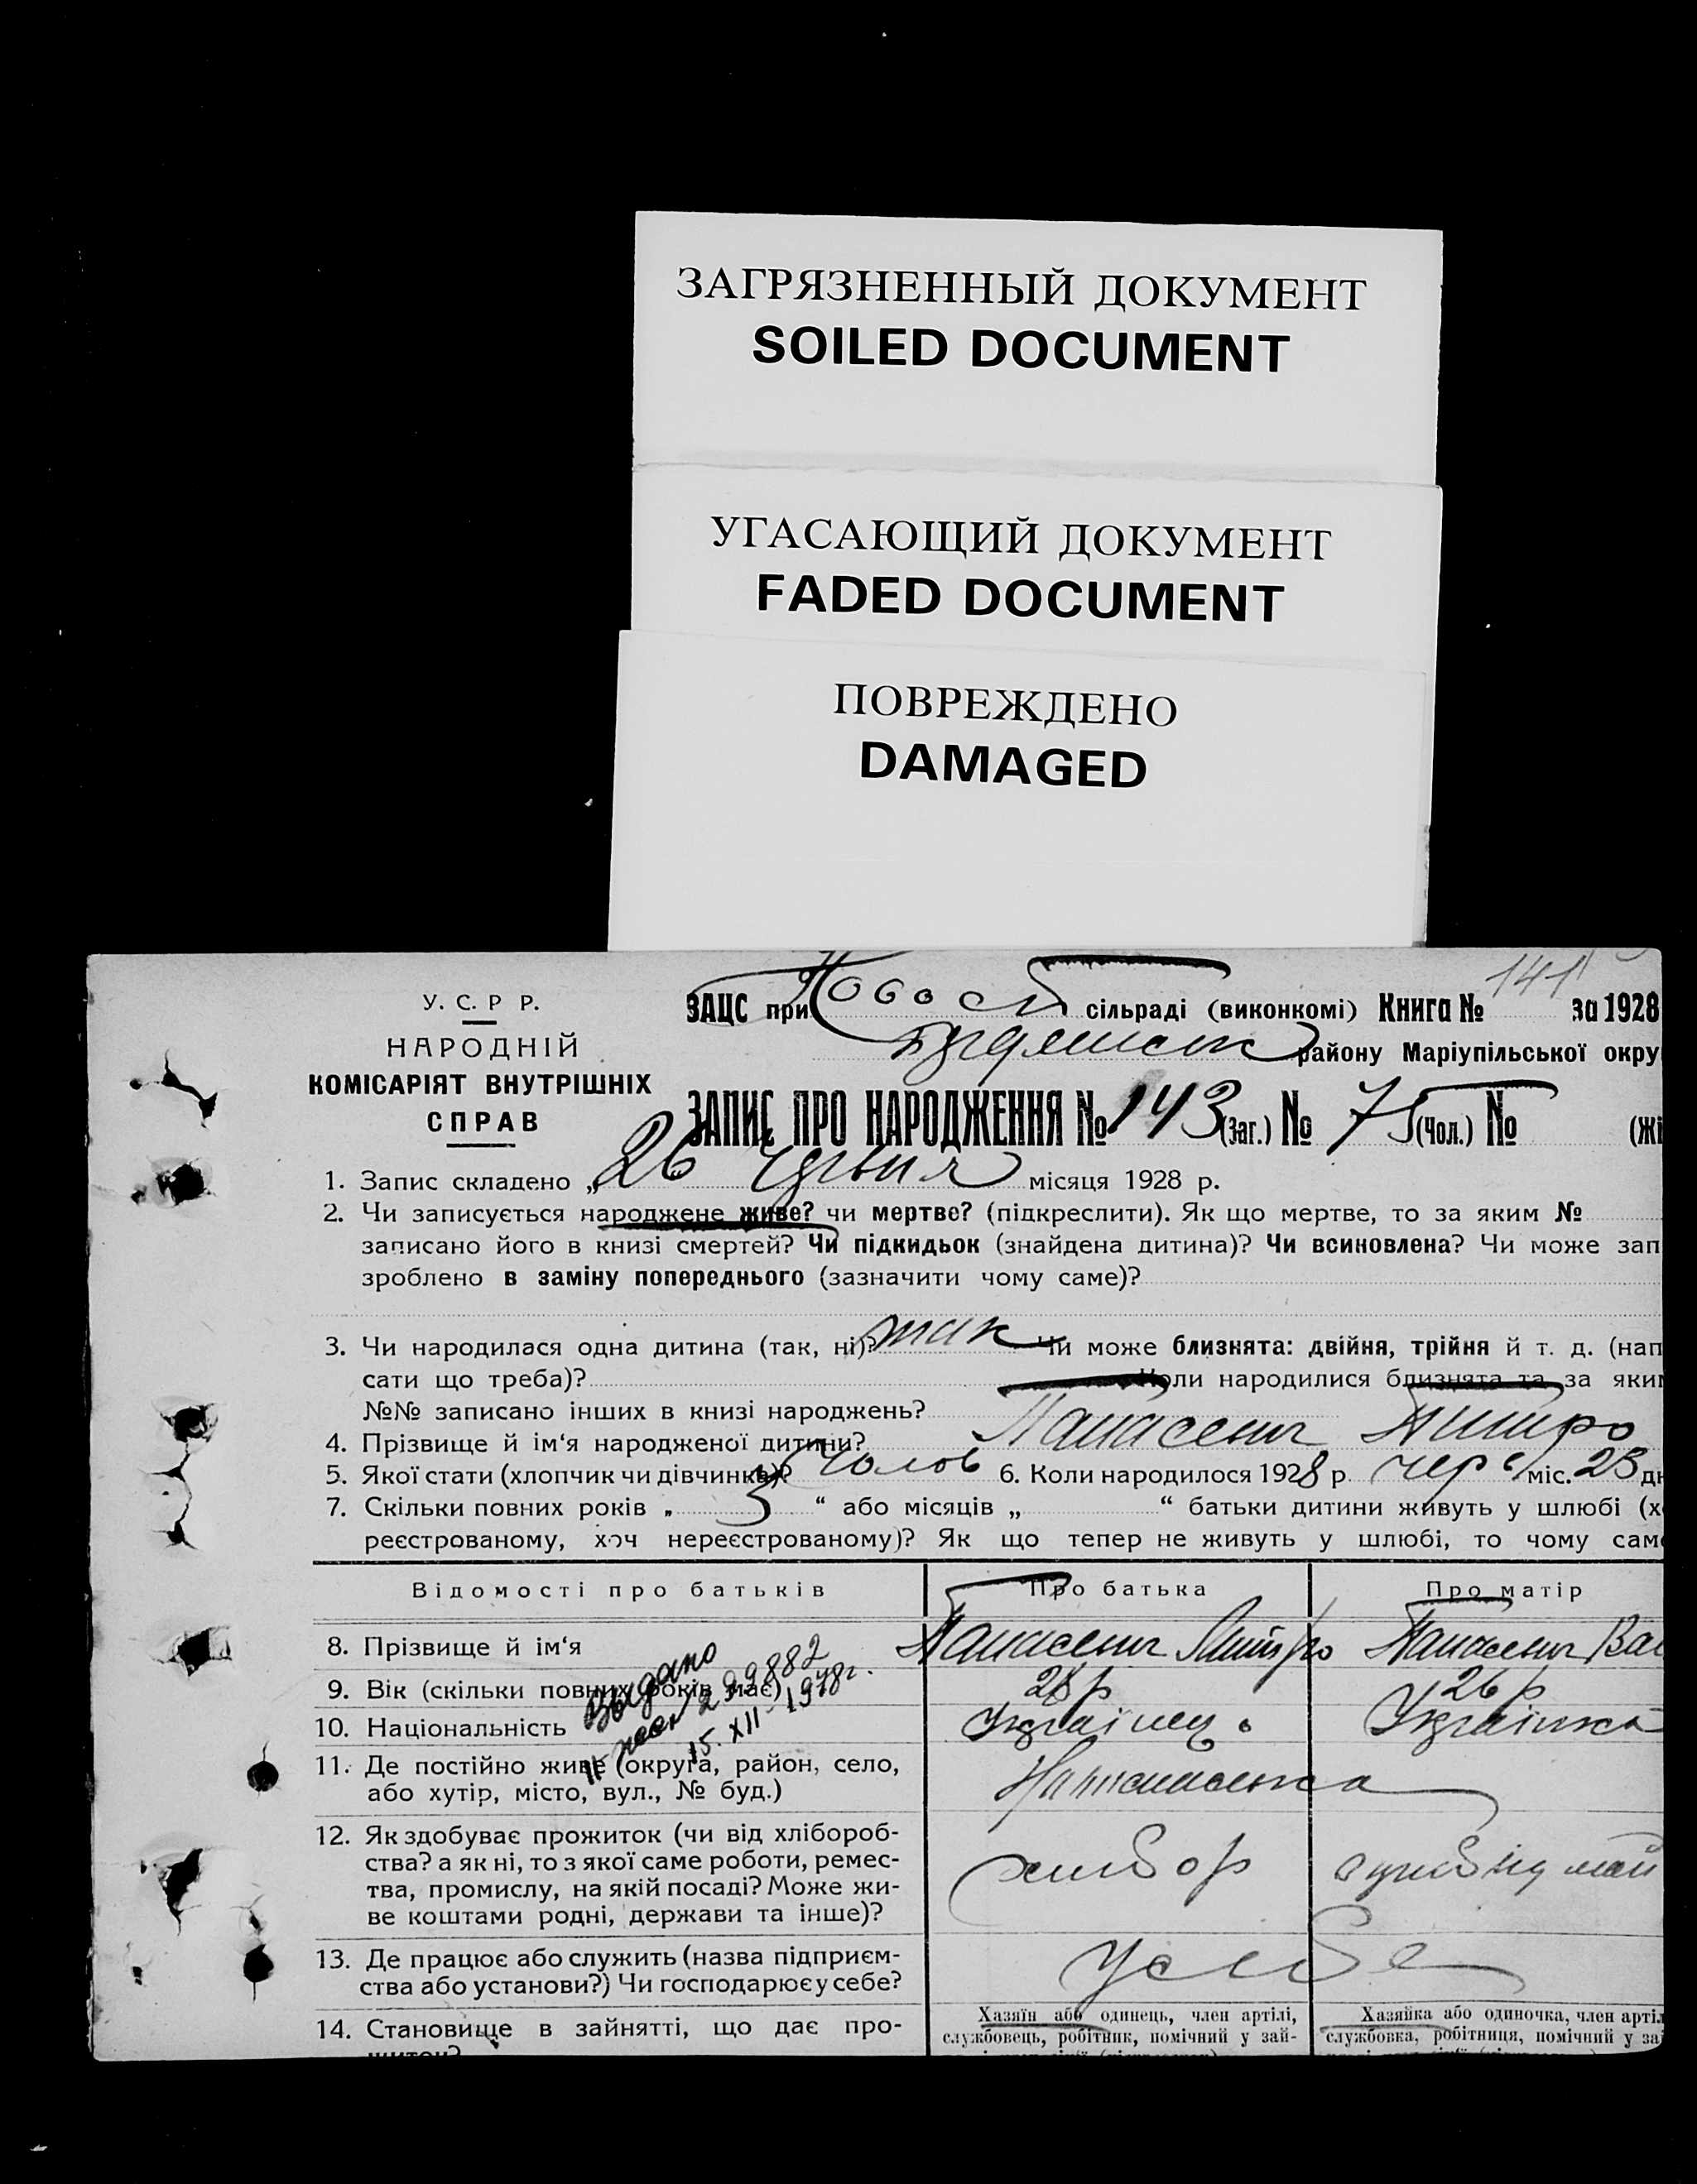 ЗАГРЯЗНЕННЫЙ ДОКУМЕНТ
SOILED DOCUMENT
УГАСАЮЩИЙ ДОКУМЕНТ
FADED DOCUMENT
ПОВРЕЖДЕНО
DAMAGED
141
У. С. Р Р.
НАРОДНІЙ
КОМІСАРІЯТ ВНУТРІШНІХ
СПРАВ
ЗАЦС при сільраді (виконкомі) Книга № за 1928
району Маріупільської окру
ЗАПИС ПРО НАРОДЖЕННЯ № 143 (Заг.) № 75 (Чол.) № (Жі
1. Запис складено „26 місяця 1928 р.
2. Чи записується народжене живе? чи мертве? (підкреслити). Як що мертве, то за яким №
записано його в книзі смертей? Чи підкидьок (знайдена дитина)? Чи всиновлена? Чи може зап
зроблено в заміну попереднього (зазначити чому саме)?
3. Чи народилася одна дитина (так, ні)? так Чи може близнята: двійня, трійня й т. д. (нап
сати що треба)? Коли народилися близнята та за яки
№№ записано інших в книзі народжень?
4. Прізвище й ім‘я народженої дитини? Панасенко Дмитро
5. Якої стати (хлопчик чи дівчинка)? Чолов 6. Коли народилося 1928 р. черв міс. 23 дн
7. Скільки повних років „ 3 “ або місяців „ “ батьки дитини живуть у шлюбі (х
реєстрованому, хоч нереєстрованому)? Як що тепер не живуть у шлюбі, то чому сам
Відомості про батьків Про батька Про матір
8. Прізвище й ім‘я Панасенко Дмитро Панасенко
9. Вік (скільки повних років має) 28 р 26 р
10. Національність Українець Українка
Выдано
299882
15. XII - 1978 г.
11. Де постійно живе (округа, район, село,
або хутір, місто, вул., № буд.)
12. Як здобуває прожиток (чи від хлібороб-
ства? а як ні, то з якої саме роботи, ремес-
тва, промислу, на якій посаді? Може жи-
ве коштами родні, держави та інше)?
хлібор
13. Де працює або служить (назва підприєм-
ства або установи?) Чи господарює у себе?
У себе
14. Становище в зайнятті, що дає про-
житок?
Хазяїн або одинець, член артілі,
службовець, робітник, помічний у зай-
Хазяйка або одиночка, член артіл
службовка, робітниця, помічний у за